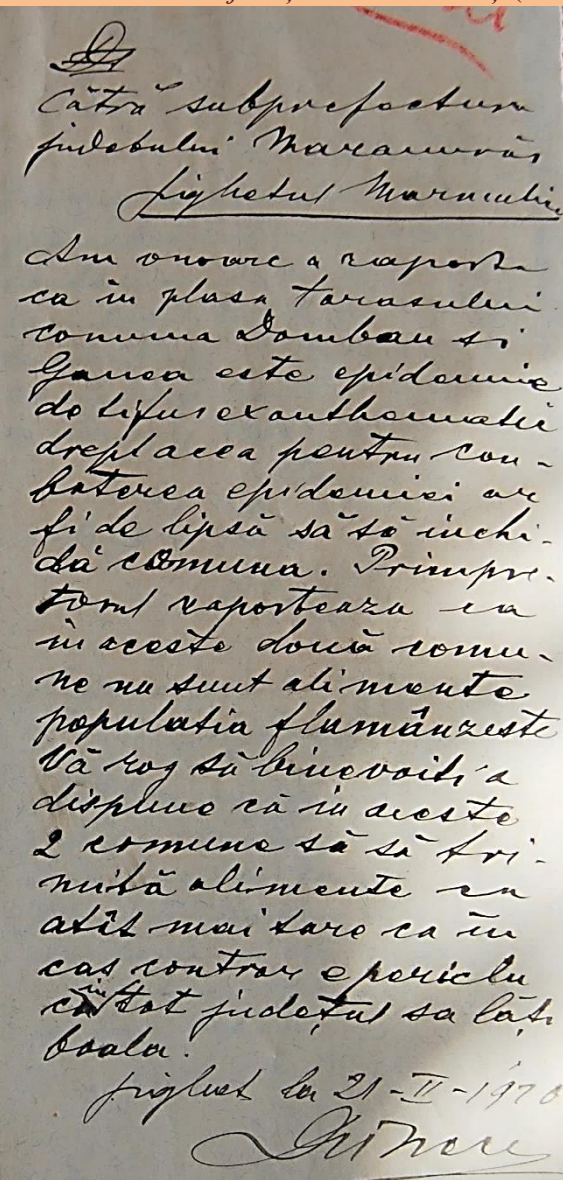 Cătră subprefectura
județului Maramurăș
Sighetul Marmatiei
Am onoare a raporta
ca in plasa Tarasului
comuna Dombau si
Ganea este epidemie
de tifus exanthematic
dreptaceea pentru com-
baterea epidemiei ar
fi de lipsă să să inchi-
dă comuna. Primpre-
torul raporteaza ca
in aceste două comu-
ne nu sunt alimente
populatia flumânzeste
Vă rog să binevoiti a
dispune că in aceste
2 comune să să tri-
mită alimente cu
atît mai tare ca in
cas contrar e periclu
că in tot județul sa lăți
boala.
Sighet la 21-II-1920